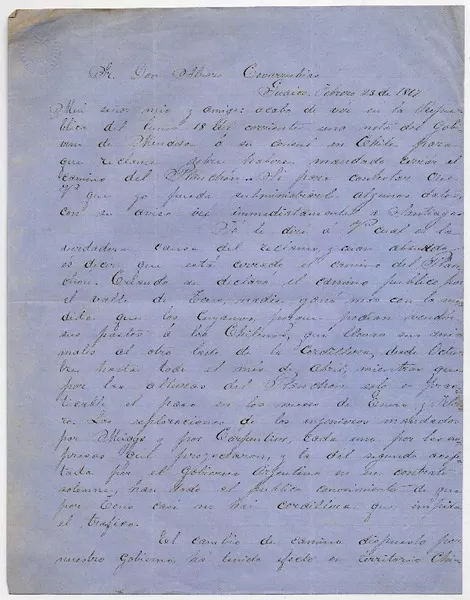 Sr. Don Alvaro Covarrubias
Curicó, Febrero 23 de 1867
Mui señor mio y amigo: acabo de ver en la Repu
blica del lunes 18 del corriente una nota del Gob
de Mendoza á su consul en Chile para
que reclame sobre haberse mandado cerrar el
camino del Planchon. Si para contestar cree
Vd que yo pueda subministrarle algunos datos,
con su aviso iré inmediatamente a Santiago
Yo le diré á Vd cual es la
verdadera causa del reclamo, y cuan absurdo
es decir que está cerrado el camino del Plan
chon. Cuando se declaró el camino publico por
el valle de Teno, nadie ganó mas con la me
dida que los Cuyanos, porque podian vender
sus pastos á los Chilenos, que llevan sus ani
males al otro lado de la Cordillera, desde Octu
bre hasta todo el mes de Abril, mientras que
por las alturas del Planchon solo es prac
ticable el paso en los meses de Enero y Febre
ro. Las esploraciones de los injenieros mandados
por Meiggs y por Carpentier, cada uno por las em
presas que proyectaron, y la del segundo acep
tada por el Gobierno Arjentino en un contrato
solemne, han dado el publico conocimiento de que
por Teno casi no hai cordillera que impida
el trafico.
El cambio de camino dispuesto por
nuestro Gobierno, ha tenido efecto en territorio Chile